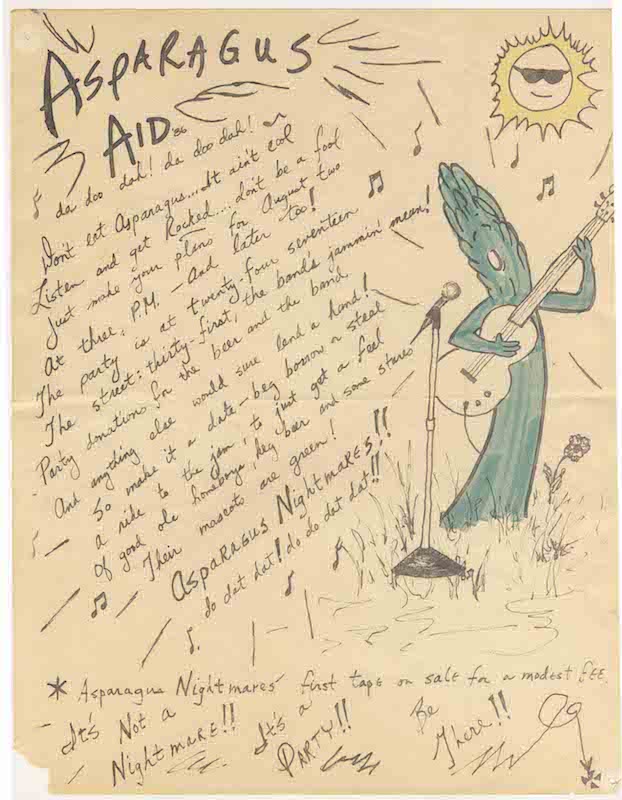 ASPARAGUS
AID '86
da doo dah! da doo dah!
Don't eat Asparagus... It ain't cool
Listen and get Rocked.... don't be a fool
Just make your plans for August two
At three, P.M. - And later too!
The party is at twenty-four seventeen
The street: thirty-first, the band's jammin' mean!
Party donations for the beer and the band
And anything else would sure lend a hand!
So make it a date - beg borrow or steal
a ride to the jam, to just get a feel
Of good ole homeboys, keg beer and some stares
Their mascots are green!
Asparagus Nightmares!!
do dat dat! do do dat dat!!
* Asparagus Nightmares' first tape on sale for a modest fee.
It's Not a
Nightmare!!
It's a
Party!!
Be
There!!